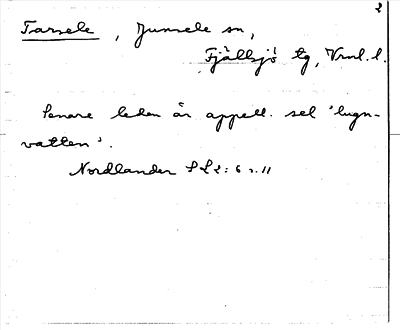 2
Tarsele, Junsele sn,
Fjällsjö tg, Vrml. l.
Senare leden är appell. sel 'lugn-
vatten'.
Nordlander SL 2: 6 s. 11